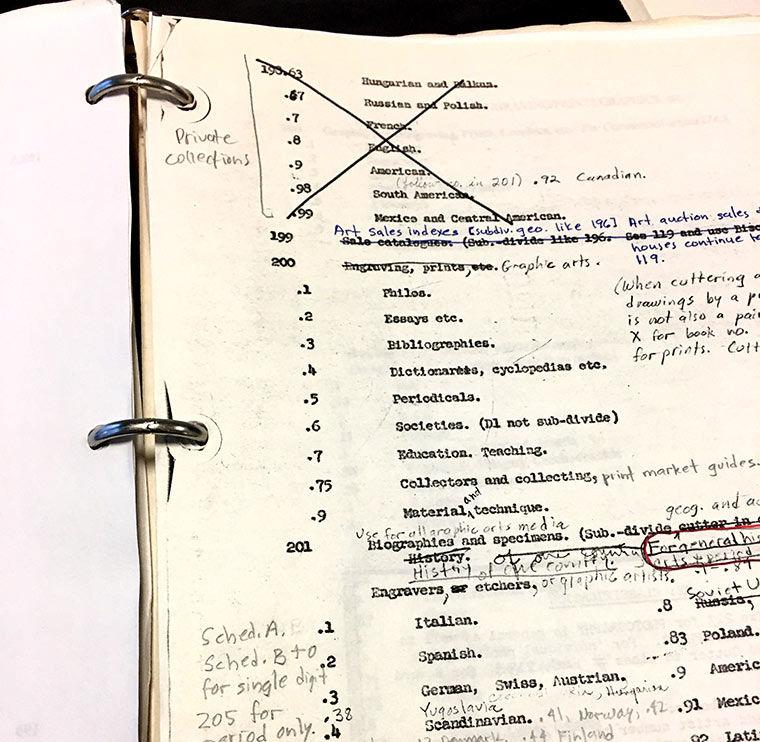 198.63 Hungarian and Balkan.
.67 Russian and Polish.
.7 French.
.8 English.
.9 American.
(follow no. in 201) .92 Canadian.
.98 South American.
.99 Mexico and Central American.
Private
collections
Art Sales indexes [subdiv. geo. like 196] Art auction sales
199 Sale catalogues. (Sub.-divide like 196. See 119 and use
houses continue
119.
200 Engraving, prints, etc. Graphic arts.
.1 Philos.
.2 Essays etc.
.3 Bibliographies.
.4 Dictionaries, cyclopedias etc.
.5 Periodicals.
.6 Societies. (D1 not sub-divide)
.7 Education. Teaching.
.75 Collectors and collecting, print market guides.
.9 Material and technique.
(When cuttering
drawings by a
is not also a
X for book no.
for prints.
geog. and
Use for all graphic arts media
201 Biographies and specimens. (Sub.-divide cutter in
History. of one country For general
History of one country
Engravers, or etchers, or graphic artists.
.1 Italian.
.2 Spanish.
.3 German, Swiss, Austrian.
Yugoslavia
.38
.4 Scandinavian. .41, Norway, .42
Denmark. .44 Finland
Soviet
.8 Russia,
.83 Poland.
.9
.91
.92
Sched. A, B
Sched. B to
for single digit
205 for
period only.